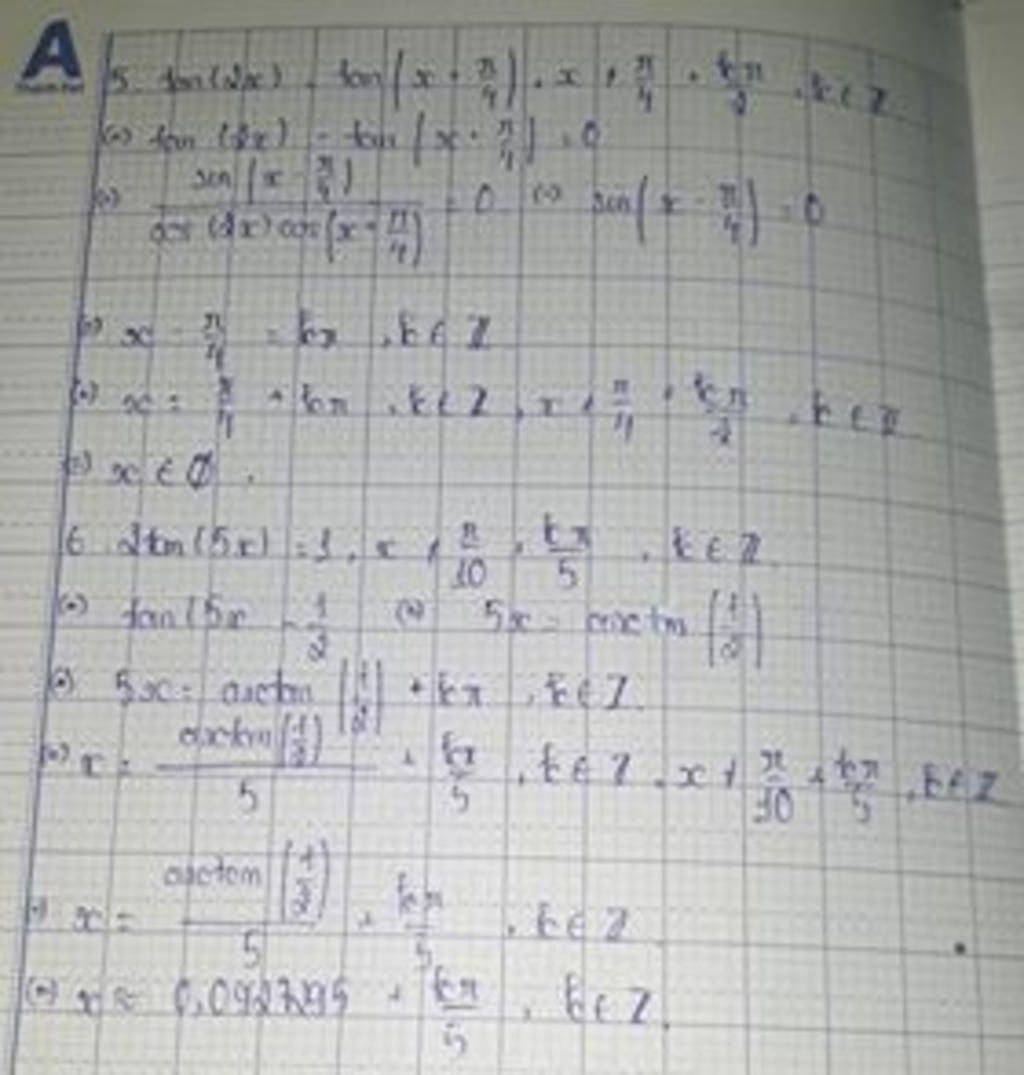 A
5. tan(2x) = tan(x + π/4), x ≠ π/4 + kπ/2, k ∈ Z
(=) tan(2x) - tan(x + π/4) = 0
(=) sin(x - π/4) / cos(2x) cos(x + π/4) = 0 (=) sin(x - π/4) = 0
(=) x - π/4 = kπ, k ∈ Z
(=) x = π/4 + kπ, k ∈ Z, x ≠ π/4 + kπ/2, k ∈ Z
(=) x ∈ Ø.
6. 2tan(5x) = 1, x ≠ π/10 + kπ/5, k ∈ Z
(=) tan(5x = 1/2 (=) 5x = arctan(1/2)
(=) 5x = arctan(1/2) + kπ, k ∈ Z.
(=) x = arctan(1/2)/5 + kπ/5, k ∈ Z, x ≠ π/10 + kπ/5, k ∈ Z
(=) x = arctan(1/2)/5 + kπ/5, k ∈ Z
(=) x ≈ 0,0927295 + kπ/5, k ∈ Z.